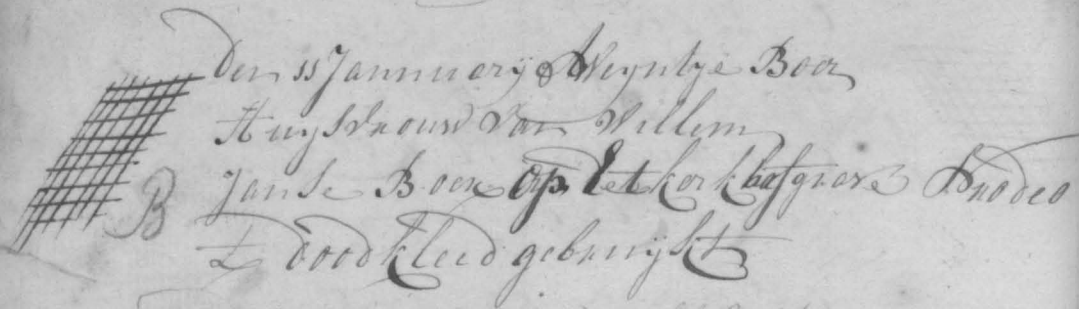 Den 11 Jannuarij Weyntye Boer
Huysvrouw van Willem
B Janse Boer op Het kerkhof grave
t doodkleed gebruijkt